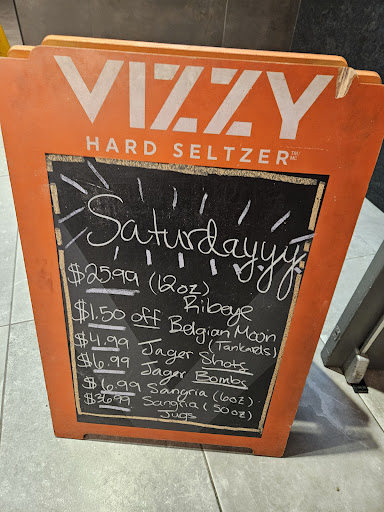 VIZZY
HARD SELTZER™
Saturdayyy
$25.99 (12oz)
Ribeye
$1.50 off Belgian Moon
(Tankards)
$4.99 Jager Shots
$6.99 Jager Bombs
$6.99 Sangria (6oz)
$36.99 Sangria (50oz)
Jugs